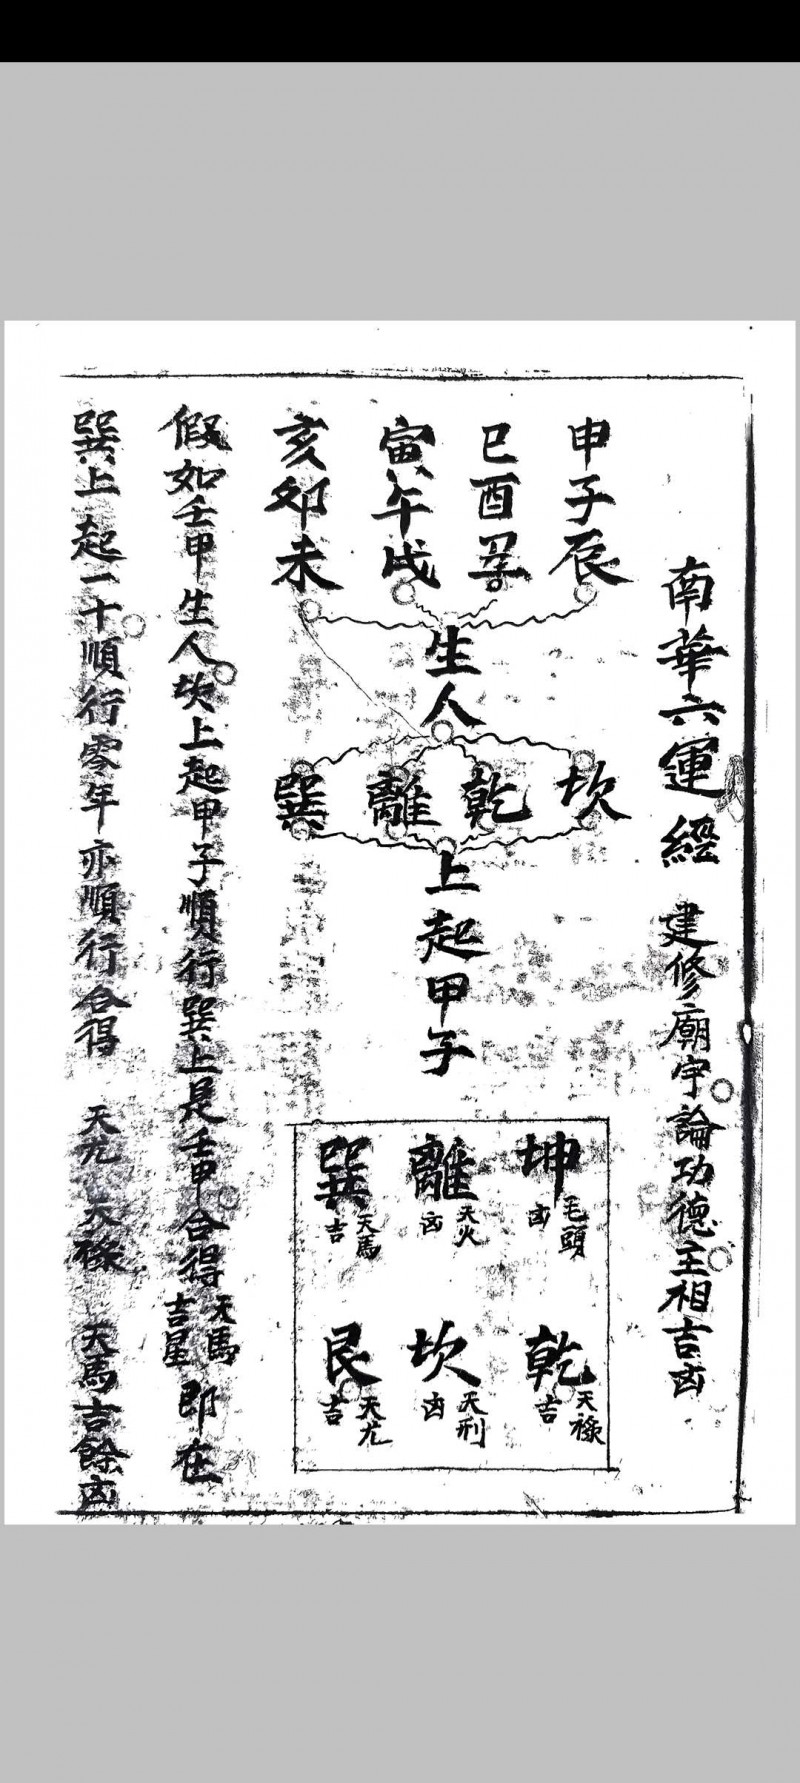 南華六運經 建修廟宇論功德主相吉凶
申子辰
巳酉丑
寅午戌
亥卯未
生人
坎
乾
離
巽
上起甲子
坤 毛頭 凶
離 天火 凶
巽 天馬 吉
乾 天祿 吉
坎 天刑 凶
艮 天尤 吉
假如壬申生人坎上起甲子順行巽上是壬申合得天馬吉星即在
巽上起一十順行零年亦順行合得 天尤 天祿 天馬吉餘凶